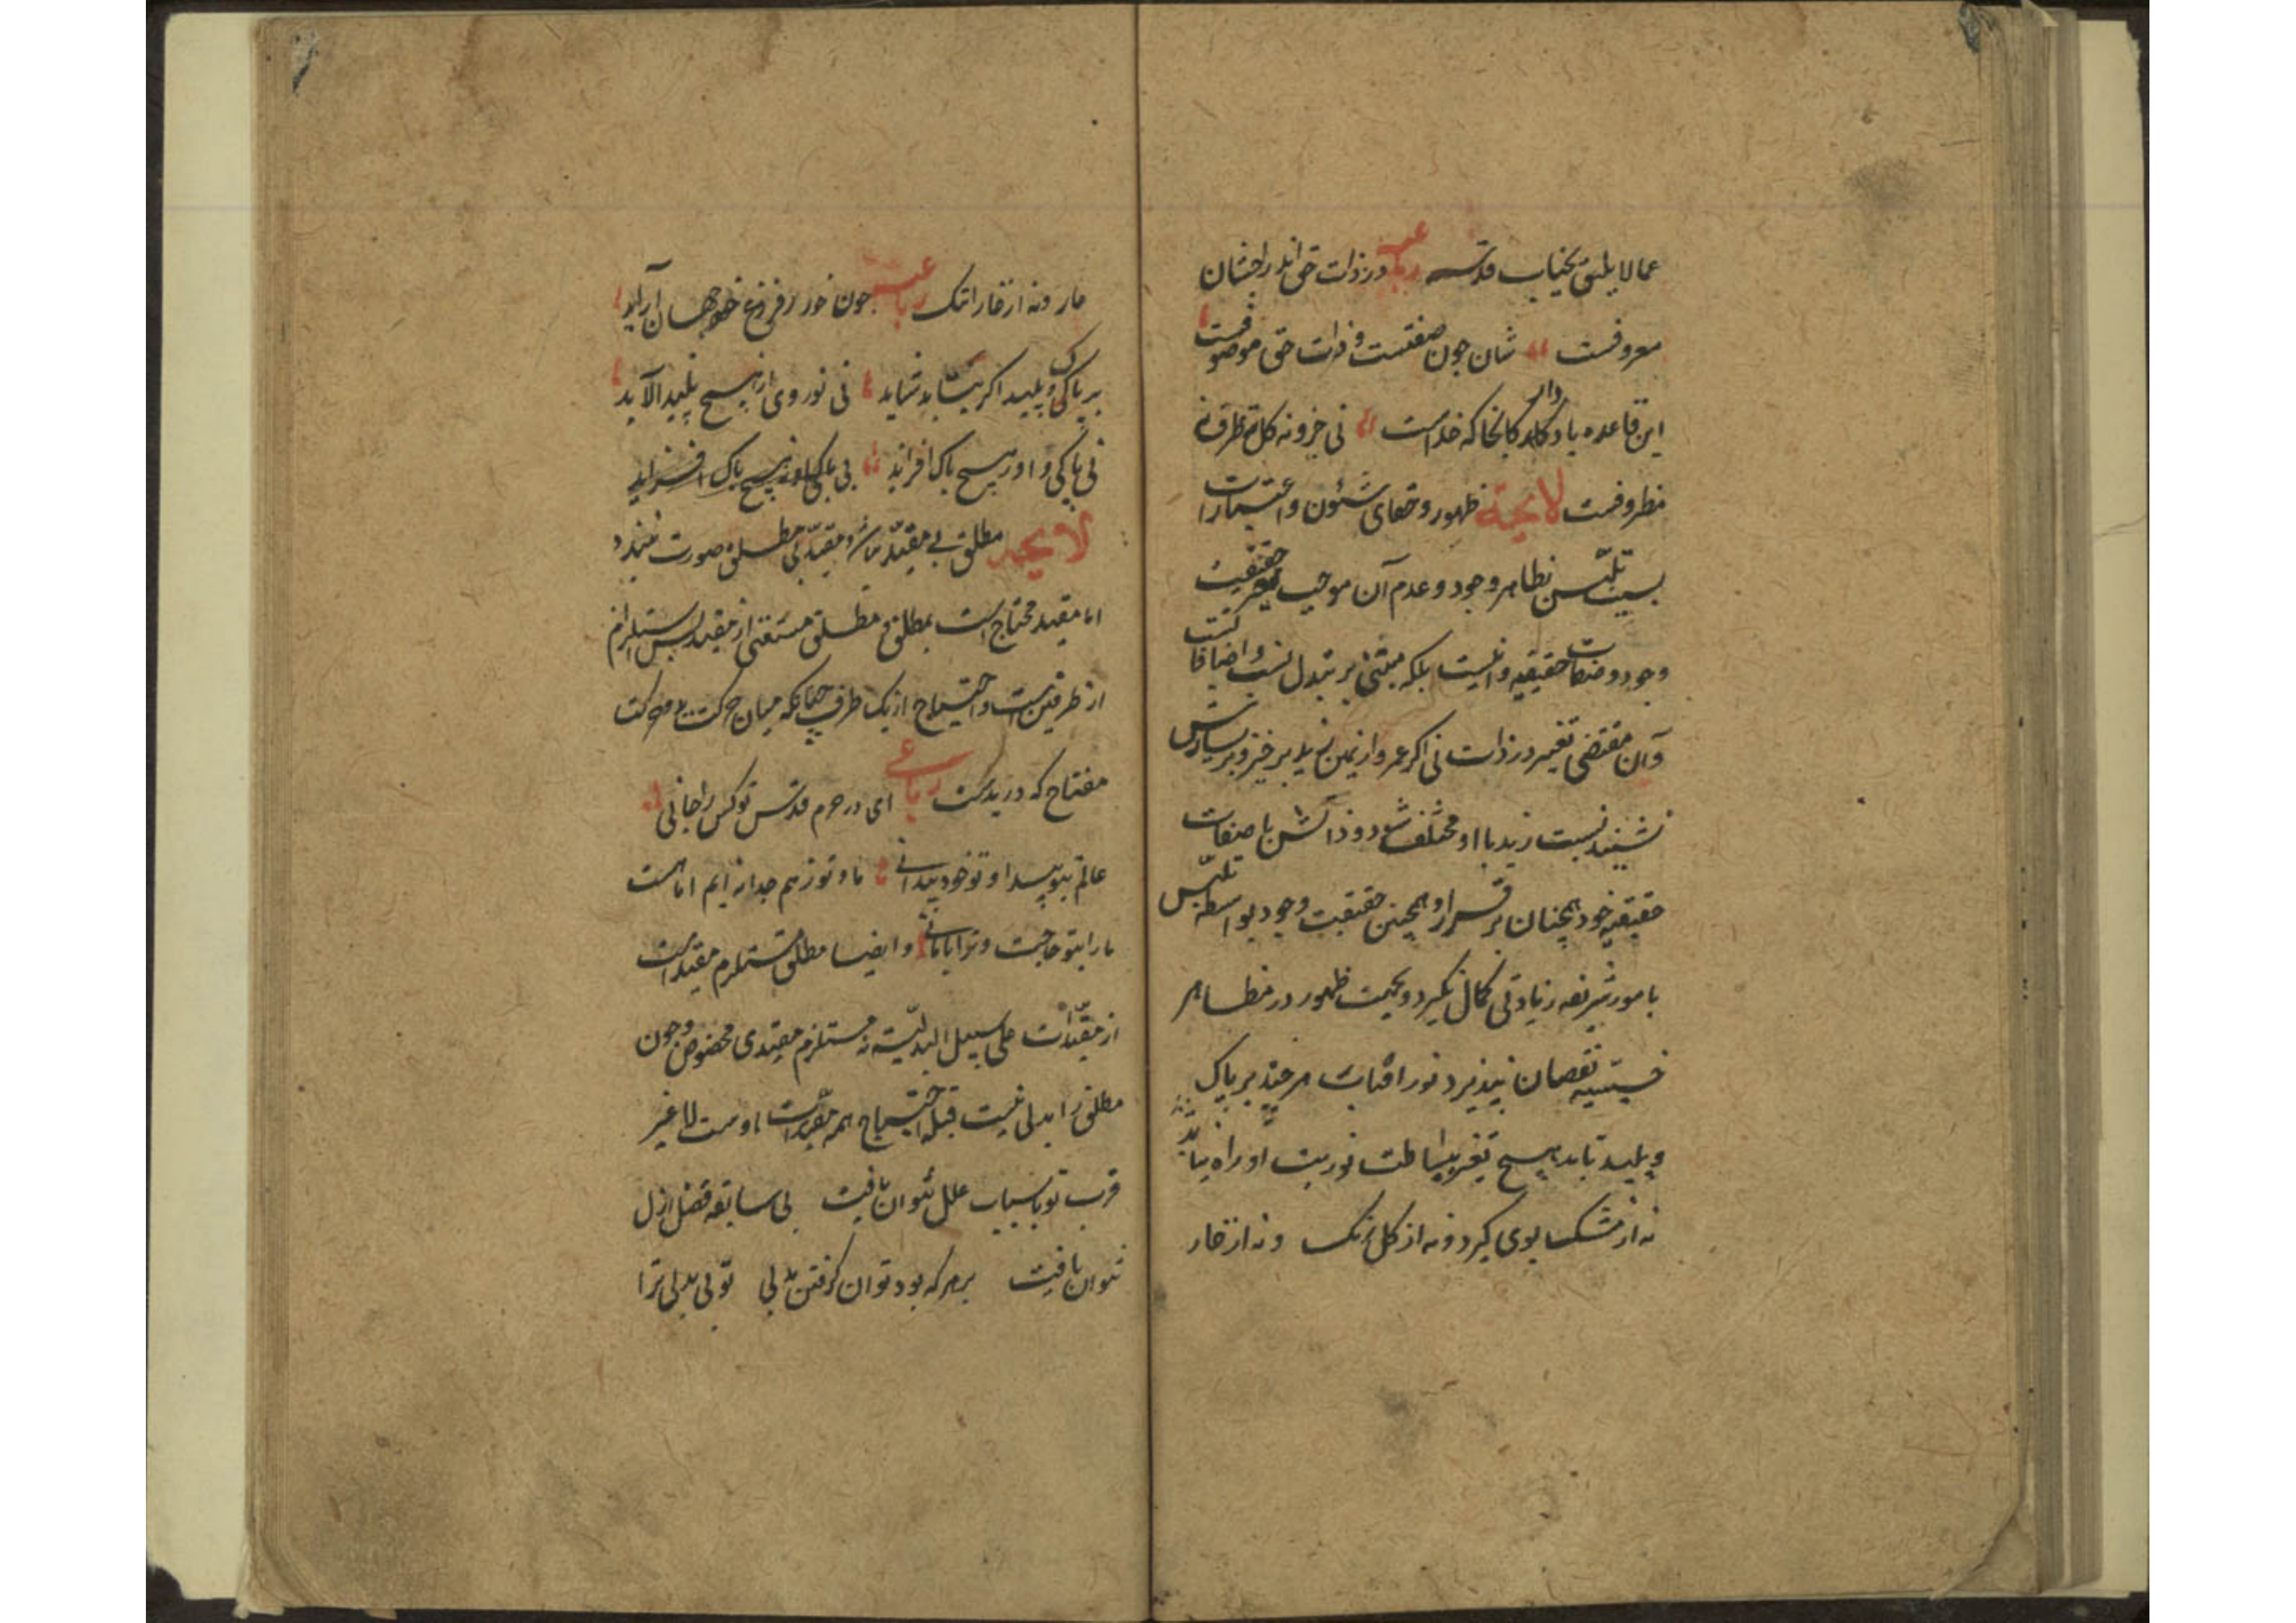 عما لا یلیق بجناب قدسه رباعیه در ذات حق اندراج شان
معروفست شان چون صفتست و ذات حق موصوفست
این قاعده یاد دار کانجا که خداست نی جزو نه کل نه ظرف نه
مظروفست لایحه ظهور و خفای شئون و اعتبارات
بسبب تلبس بظاهر وجود و عدم آن موجب تغیر حقیقت
وجود و صفات حقیقیه او نیست بلکه مبتنی بر تبدل نسب و اضافاتست
و آن مقتضی تغییر در ذات نی اگر عمرو از یمین زید برخیزد و بر یسارش
نشیند نسبت زید با او مختلف شود و ذاتش با صفات
حقیقیه خود همچنان برقرار و همچنین حقیقت وجود بواسطه تلبس
بامور شریفه زیادتی کمال نگیرد و بجهت ظهور در مظاهر
خسیسه نقصان نپذیرد نور آفتاب هر چند بر پاک
و پلید تابد هیچ تغیر ببساطت نوریت او راه نیابد
نه از مشک بوی گیرد و نه از گل رنگ و نه از خار
عار و نه از خارا ننگ رباعیه چون خور ز فروغ خود جهان آراید
بر پاک و پلید اگر بتابد شاید نی نور وی از هیچ پلید آلاید
نی پاکی او ز هیچ پاک افزاید
لایحه مطلق بی مقید نباشد و مقید بی مطلق صورت نبندد
اما مقید محتاج است بمطلق و مطلق مستغنی از مقید پس استلزام
از طرفین است و احتیاج از یک طرف چنانکه میان حرکت ید و حرکت
مفتاح که در ید است رباعی ای در حرم قدس تو کس را جا نی
عالم بتو پیدا و تو خود پیدا نی ما و تو ز هم جدا نه ایم اما هست
ما را بتو حاجت و ترا با ما نی و ایضا مطلق مستلزم مقید است
از مقیدات علی سبیل البدلیه نه مستلزم مقیدی مخصوص و چون
مطلق را بدلی نیست قبله احتیاج همه مقیدات اوست لا غیر
قرب تو باسباب علل نتوان یافت بی سابقه فضل ازل
نتوان یافت بر هر که بود توان گرفتن بدلی تو بی بدلی ترا